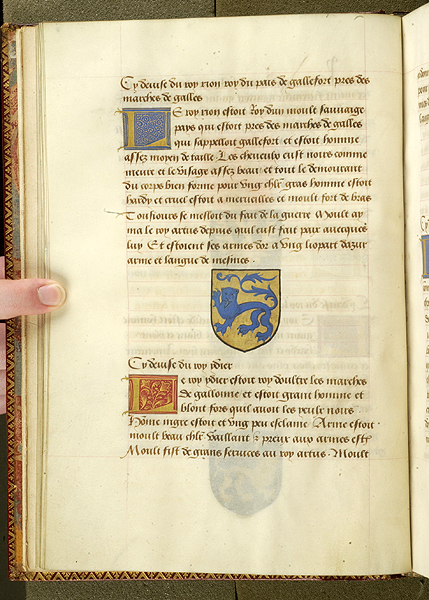 Cy devise du roy rion roy du pais de gallefort pres des
marches de galles
Le roy rion estoit Roy dun moult sauvaige
pays qui estoit pres des marches de galles
qui sappelloit gallefort et estoit homme
assez moyen de taille Les cheveulx eust noirs comme
meure et le visage assez beau et tout le demourant
du corps bien forme pour ung chlr gras homme estoit
hardy et cruel estoit a merveilles et moult fort de bras
Tousiours se mesloit du fait de la guerre Moult ay
ma le roy artus depuis quil eust fait paix avecques
luy Et estoient ses armes dor a ung liepart dazur
arme et langue de mesmes
Cy devise du roy ydier
Le roy ydier estoit roy doultre les marches
de gallonne et estoit grant homme et
blont fors quil avoit les yeulx noirs
home migre estoit et ung peu esclame Arme estoit
moult beau chlr Vaillant & preux aux armes estt
Moult fist de grans services au roy artus Moult